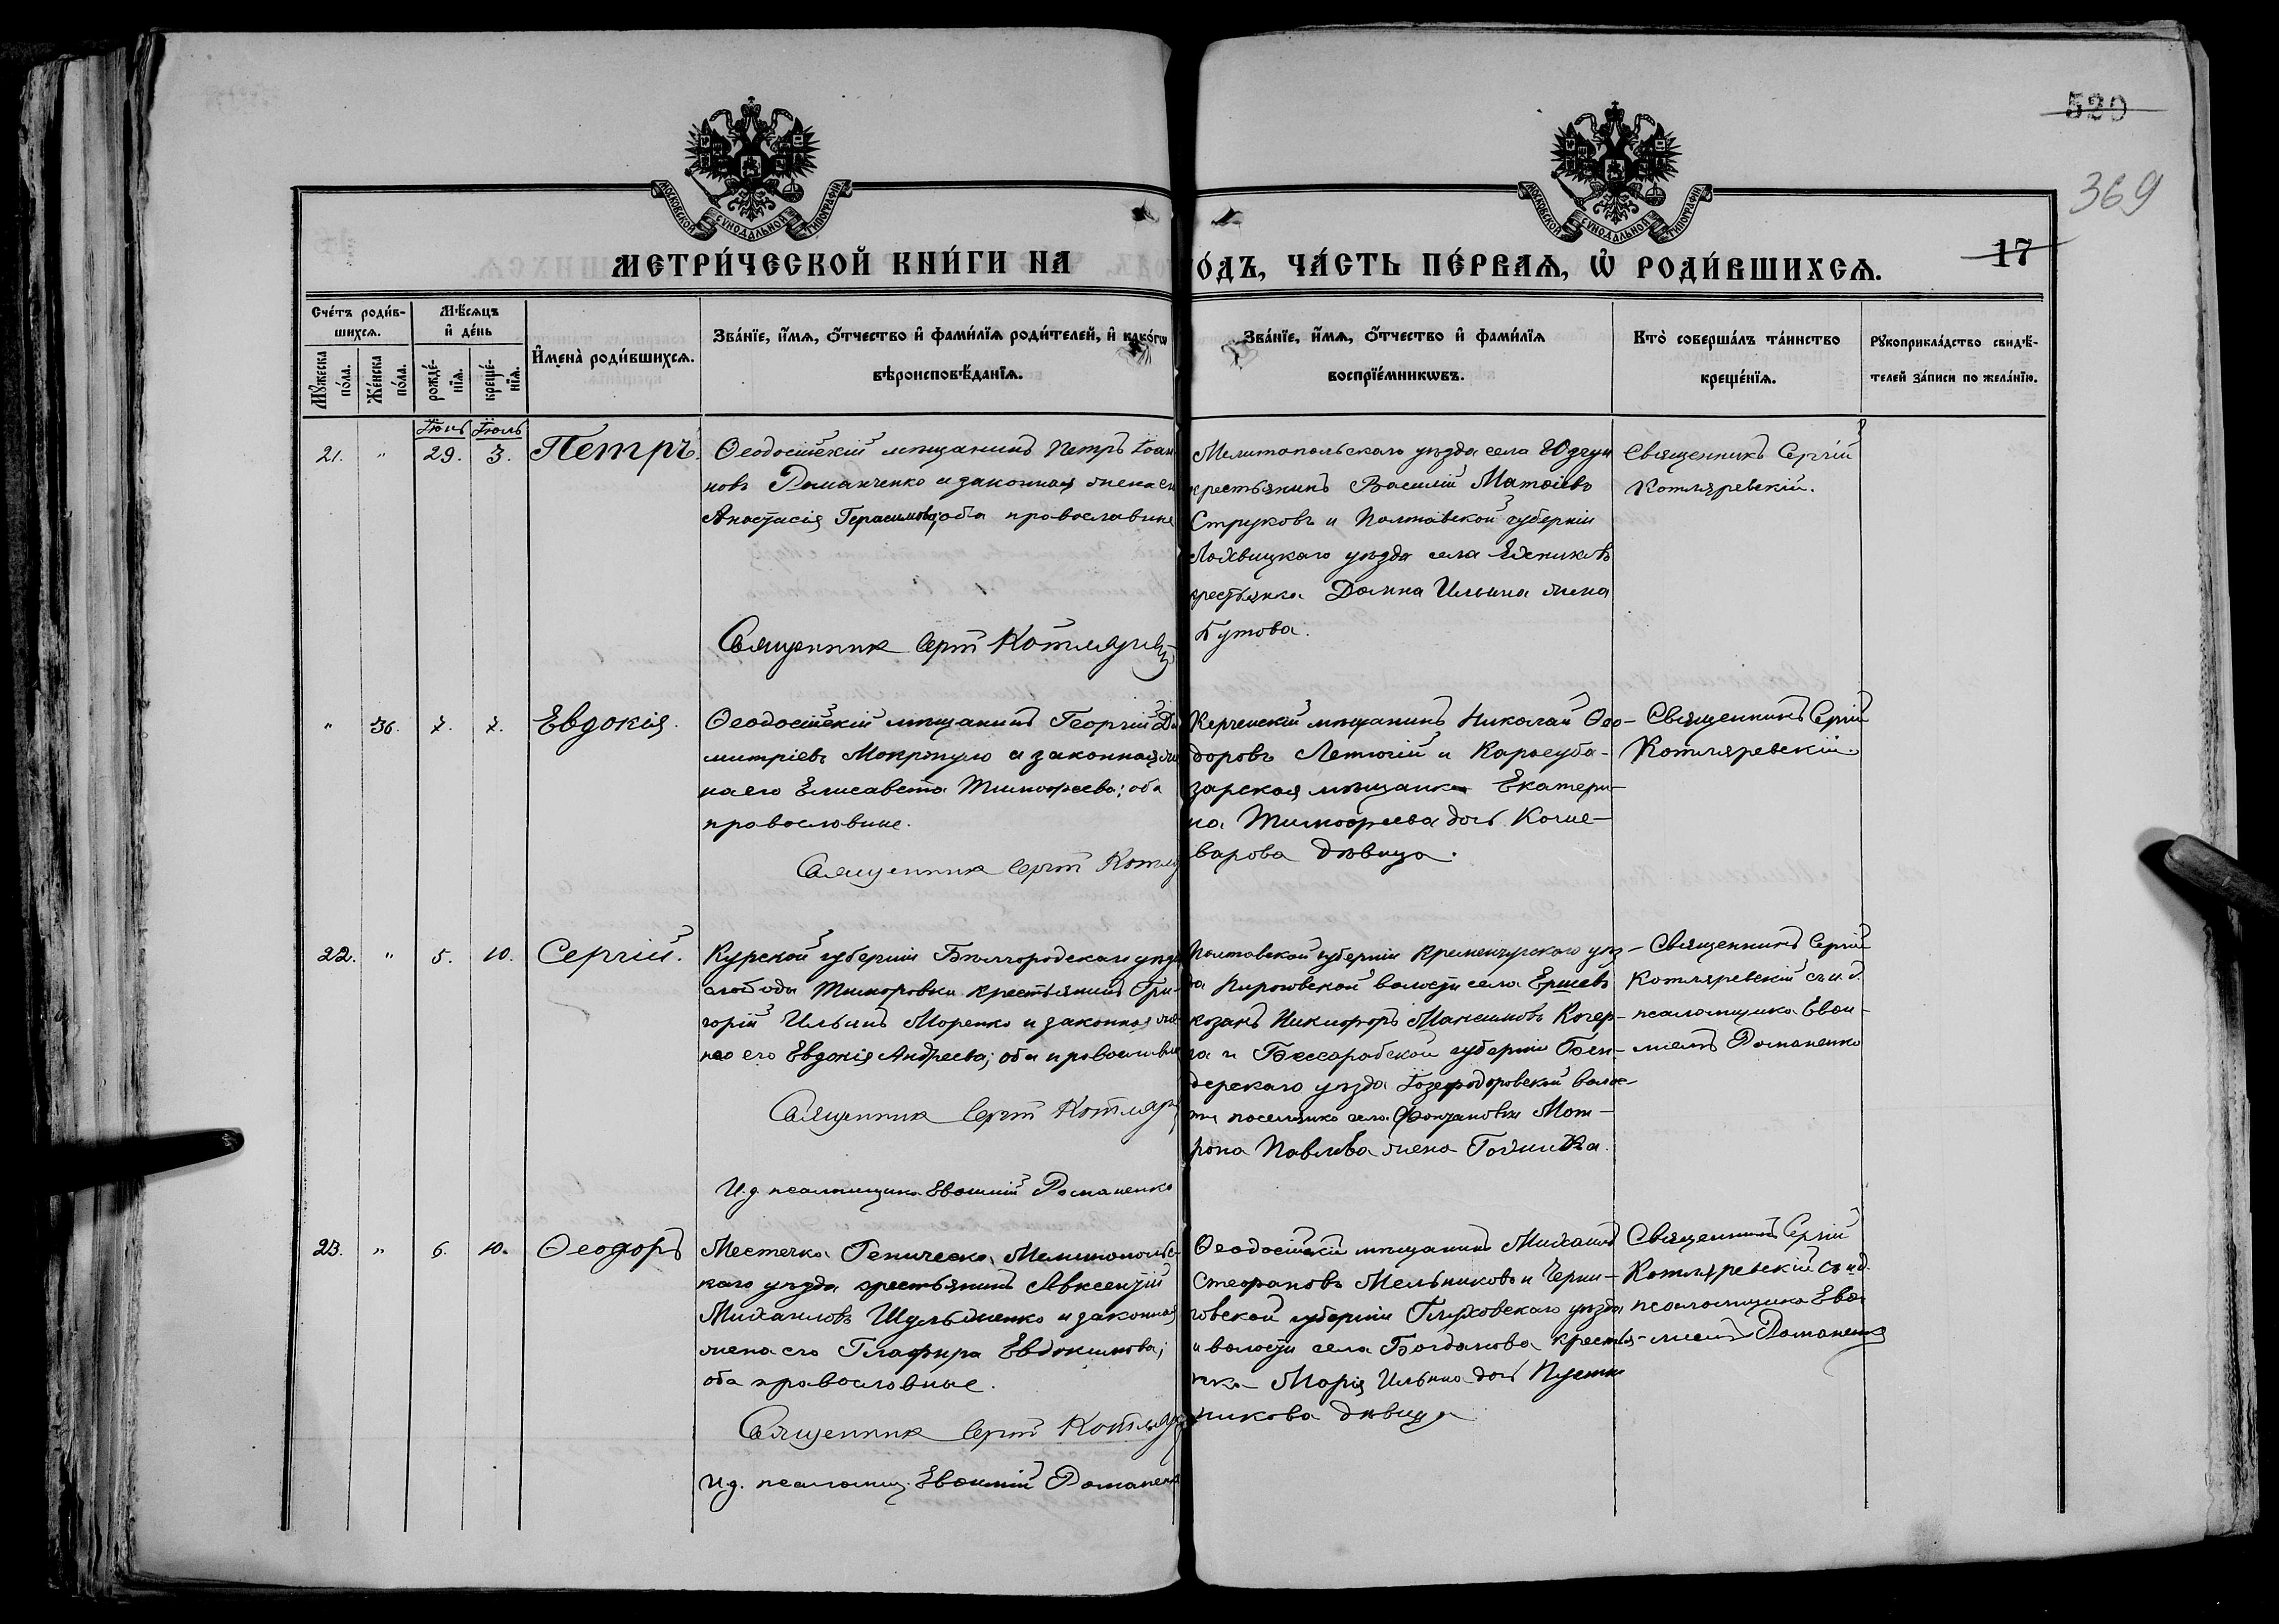 520
369
17
МОСКОВСКОЙ СѴНОДАЛЬНОЙ ТИПОГРАФІИ
МОСКОВСКОЙ СѴНОДАЛЬНОЙ ТИПОГРАФІИ
МЕТРИ́ЧЕСКОЙ КНИ́ГИ НА
О́ДЪ, ЧА́СТЬ ПЕ́РВАѦ, Ѡ҆ РОДИ́ВШИХСѦ.
Сче́тъ роди́в-
шихсѧ.
Мꙋ́жеска по́ла.
Же́нска по́ла.
Мѣ́сѧцъ и҆ де́нь
рожде́-нїѧ.
креще́-нїѧ.
И҆мена̀ роди́вшихсѧ.
Зва́нїе, и҆́мѧ, ѻ҆́тчество и҆ фами́лїѧ роди́телей, и҆ како́гѡ
вѣроисповѣ́данїѧ.
Зва́нїе, и҆́мѧ, ѻ҆́тчество и҆ фами́лїѧ
воспрїе́мникѡвъ.
Кто̀ соверша́лъ та́инство
креще́нїѧ.
Рꙋкоприкла́дство свидѣ́-
телей за́писи по жела́нїю.
Іюнь Іюль
21. " 29. 3. Петръ.
Ѳеодосійскій мѣщанинъ Петръ Іоан
новъ Романченко и законная жена ея
Анастасія Герасимова; оба православные
Священникъ Сергій Котляревскій
Мелитопольскаго уѣзда села
крестьянинъ Василій Матѳіевъ
Струковъ и Полтавской губерніи
Лохвицкаго уѣзда села Яхниковъ
крестьянка Домна Ильина жена
Бутова.
Священникъ Сергій
Котляревскій.
" 36. 7. 7. Евдокія.
Ѳеодосійскій мѣщанинъ Георгій Ди
митріевъ и законная же
на его Елисавета Тимоѳеева; оба
православные.
Священникъ Сергій Котля
Керченскій мѣщанинъ Николай Ѳео-
доровъ Летючій и Карасуба-
зарская мѣщанка Екатери-
на Тимоѳеева дочь Каше-
варова дѣвица.
Священникъ Сергій
Котляревскій
22. " 5. 10. Сергій.
Курской губерніи Бѣлгородскаго уѣзда
слободы Томаровки крестьянинъ Гри-
горій Ильинъ Моренко и законная же-
на его Евдокія Андреева; оба православные
Священникъ Сергій Котляр
И.д. псаломщика Евѳимій Романенко
Полтавской губерніи Кременчугскаго уѣз-
да волости села
козакъ Никифоръ Максимовъ Кочер-
га и Бессарабской губерніи Бен-
дерскаго уѣзда волос-
ти поселянка села Мот-
рона Павлова жена
Священникъ Сергій
Котляревскій съ и.д.
псаломщика Евѳи-
міемъ Романенко
23. " 6. 10. Ѳеодоръ
Местечка Геническа Мелитопольс-
каго уѣзда крестьянинъ Авксентій
Михаиловъ и законная
жена его Глафира Евдокимова;
оба православные.
Священникъ Сергій Котляр
И.д. псаломщ. Евѳимій Романенко
Ѳеодосійскій мѣщанинъ Михаилъ
Стефановъ Мельниковъ и Черни-
говской губерніи Глуховскаго уѣзда
и волости села Богданова крестья-
нка Марія Ильина дочь Пусти
никова дѣвица
Священникъ Сергій
Котляревскій съ и.д.
псаломщика Евѳи-
міемъ Романенко